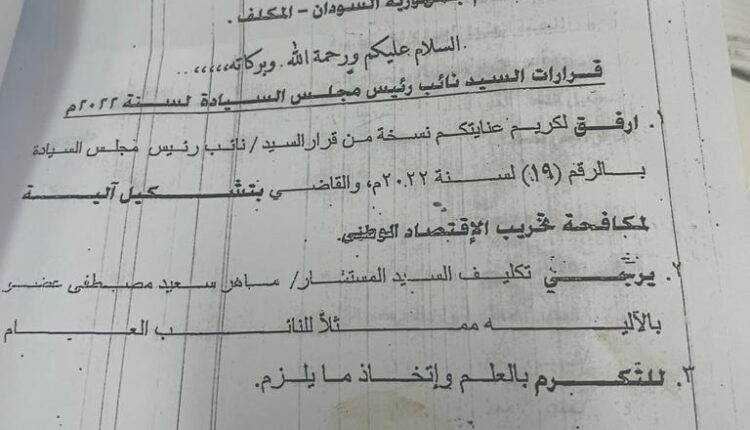 بجمهورية السودان - المكلف .
السلام عليكم ورحمة الله. وبركاته،،،،،
قرارات السيد نائب رئيس مجلس السيادة لسنة ٢٠٢٢م
١. ارفق لكريم عنايتكم نسخة من قرار السيد/ نائب رئيس مجلس السيادة
بالرقم (١٩) لسنة ٢٠٢٢م، والقاضي بتشكيل آلية
لمكافحة تخريب الإقتصاد الوطني.
٢. يرجى تكليف السيد المستشار/ ماهر سعيد مصطفى عضو
بالآليه ممثلاً للنائب العام
٣. للتكرم بالعلم وإتخاذ ما يلزم.